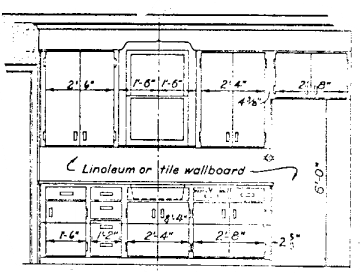 2'-6" 1'-6" 1'-6" 2'-4" 2'-8"
4 3/8"
Linoleum or tile wallboard
6'-0"
8'-4"
1'-6" 1'-2" 2'-4" 2'-8" 2 5/8"